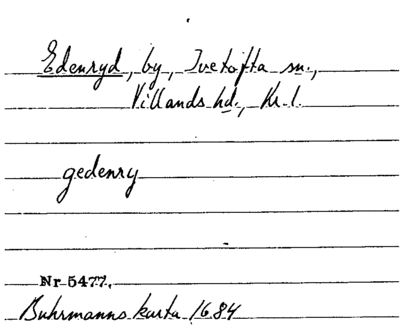 Edenryd, by, Ivetofta sn.,
Villands hd., Kr. l.
gedenry
Nr 5477.
Buhrmanns karta 1684